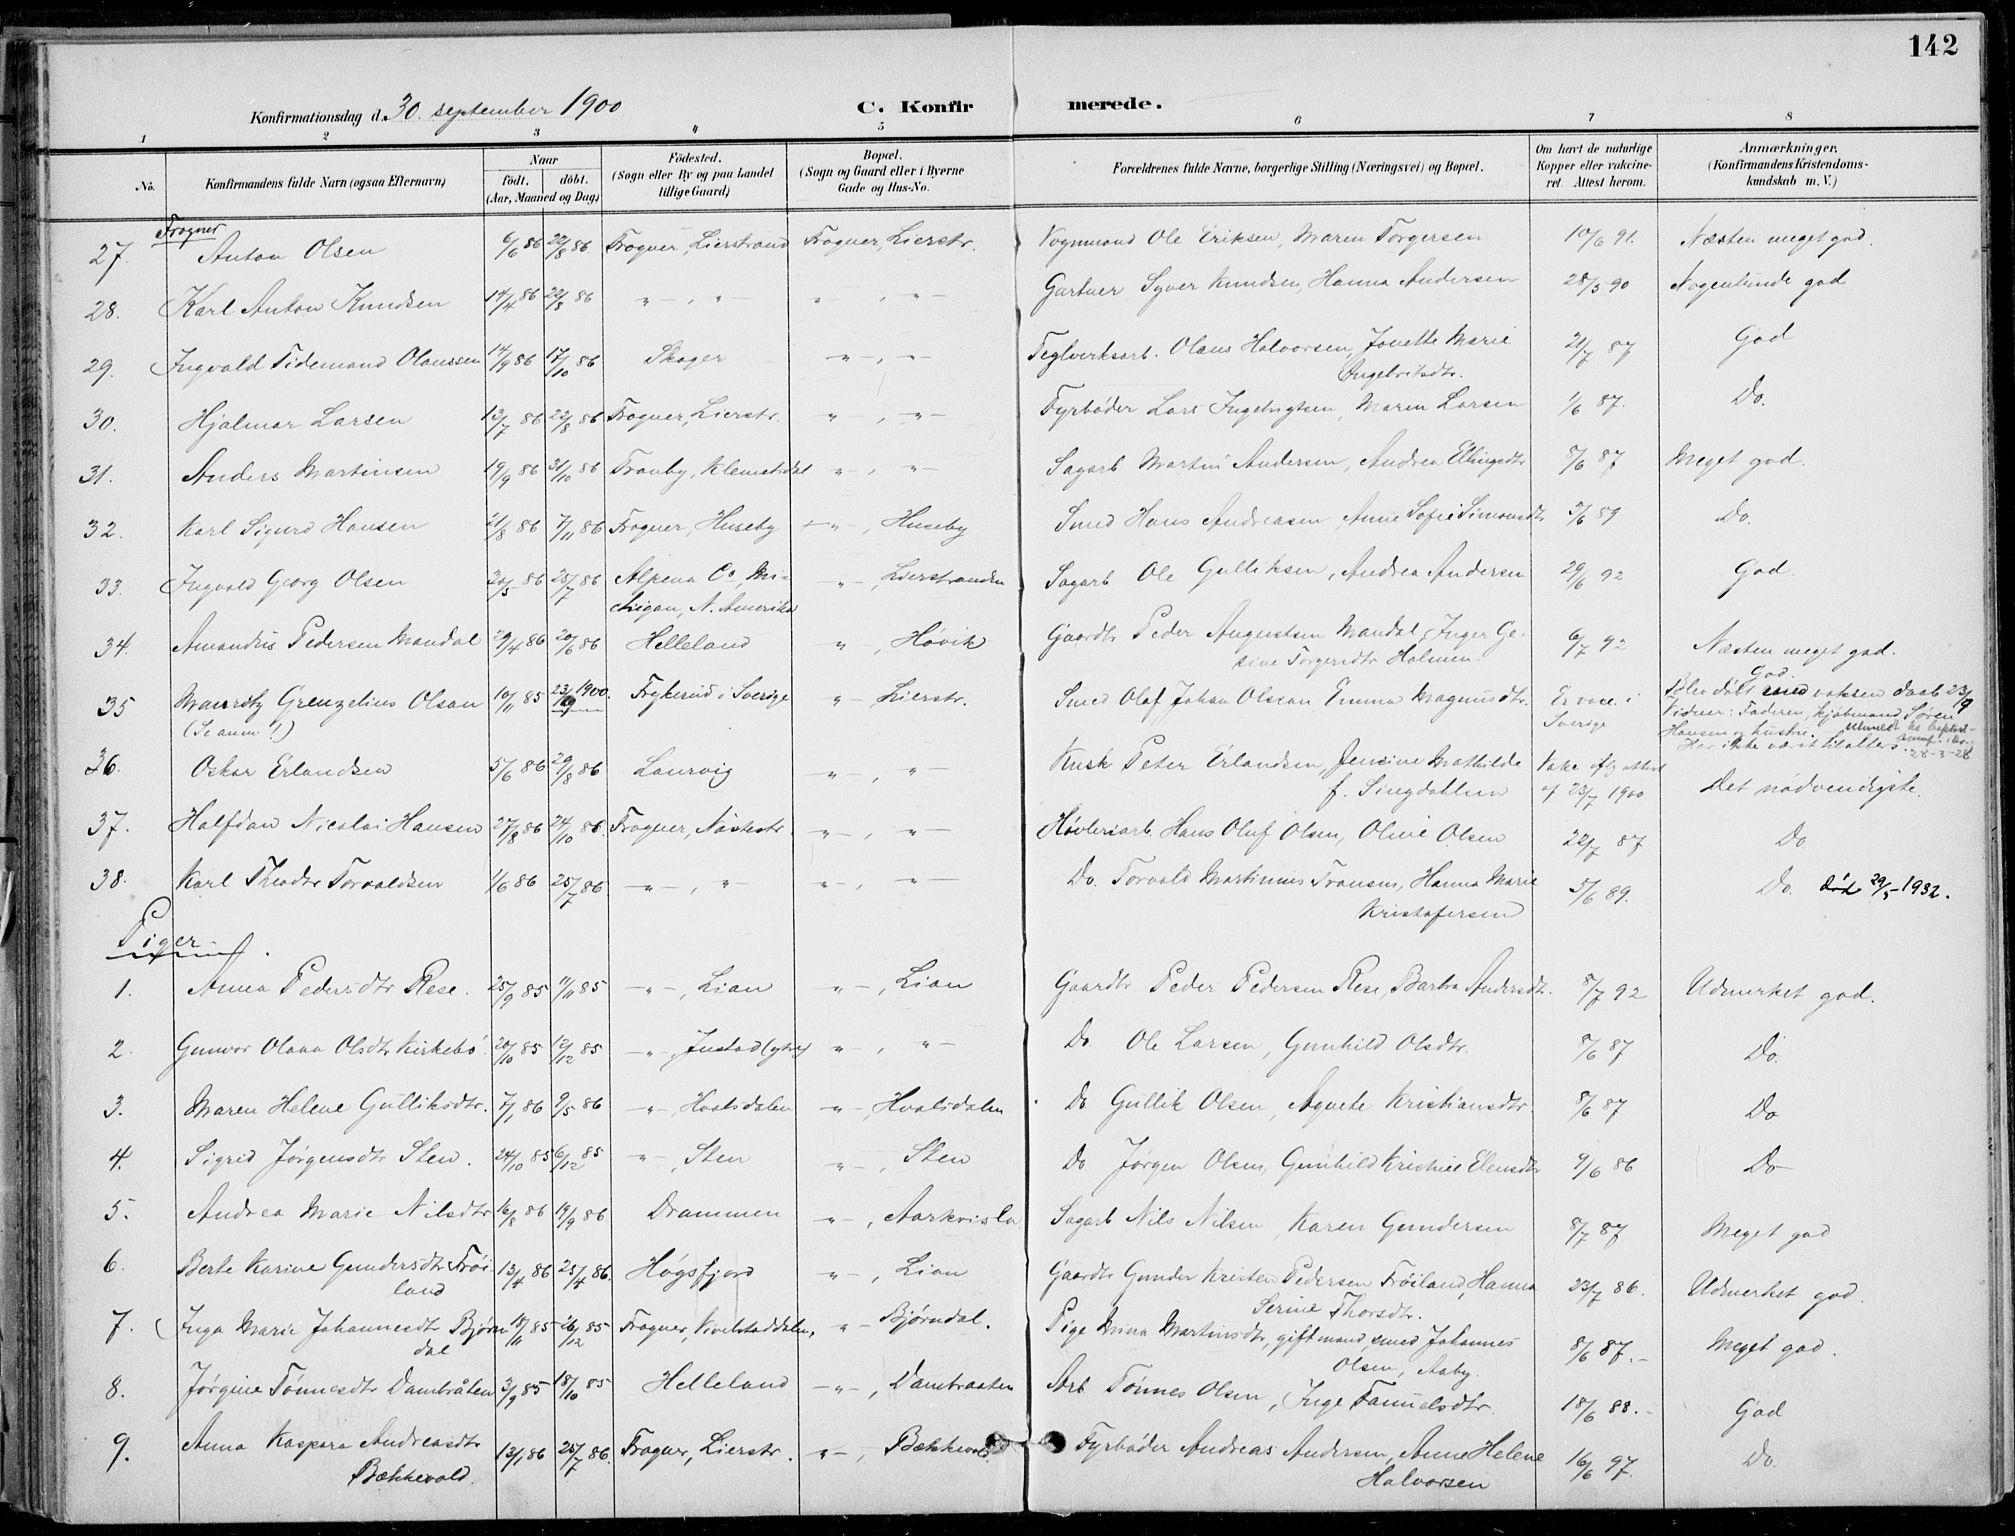 142
Konfirmationsdag d. 30. september 1900 C. Konfirmerede.
1 2 3 4 5 6 7 8
No. Konfirmandens fulde Navn (ogsaa Efternavn) Naar født. døbt. (Aar, Maaned og Dag) Fødested. (Sogn eller By og paa Landet tillige Gaard) Bopæl. (Sogn og Gaard eller i Byerne Gade og Hus-No. Forældrenes fulde Navne, borgerlige Stilling (Næringsvei) og Bopæl. Om havt de naturlige Kopper eller vakcineret. Attest herom. Anmærkninger. (Konfirmandens Kristendomskundskab m. V.)
Frogner
27. Anton Olsen 6/6 86 22/8 86. Frogner, Lierstrand Frogner, Lierstr. Vognmand Ole Eriksen, Maren Torgersen 10/6 91. Næsten meget god.
28. Karl Anton Knudsen 14/4 86 22/8 86 -"-, -"- -"-, -"- Gartner Syver Knudsen, Hanna Andersen 28/5 90 Nogenlunde god
29. Ingvald Tidemand Olaussen 14/9 86 17/10 86 Skoger -"-, -"- Teglverksarb. Olaus Halvorsen, Jonette Marie 21/7 87 God
Ingebritsdtr.
30. Hjalmar Larsen 13/7 86 22/8 86 Frogner, Lierstr. -"-, -"- Fyrbøder Lars Ingebrigtsen, Maren Larsen 1/6 87. Do.
31. Anders Martinsen 19/9 86 31/10 86 Tranby, Klemetsdal -"-, -"- Sagarb Martin Andersen, Andrea Ellingsdtr 8/6 87 Meget god.
32. Karl Sigurd Hansen 21/8 86 7/11 86 Frogner, Huseby -"-, Huseby Smed Hans Andreasen, Anne Sofie Simonsdtr 3/6 89 Do.
33. Ingvald Georg Olsen 30/5 86 25/7 86 Alpena Co. Mi- -"-, Lierstranden Sagarb Ole Gulliksen, Andrea Andersen 29/6 92 God.
chigan, N. Amerika
34. Amandus Pedersen Mandal 29/4 86 20/6 86 Helleland -"-, Høvik Gaardbr Peder Augustsen Mandal, Inger Ge- 6/7 92 Næsten meget god.
sine Torgersdtr Holmen.
35 Mauritz Grenzelius Olsan 10/11 85 23/9 1900. Frykerud i Sverige -"-, Lierstr. Smed Olaf Johan Olsson, Emma Magnusdtr. Er vacc. i Sverige God.
(Se anm. 1) Blev døbt med voksen daab 23/9
Vidner: Faderen, kjøbmand Søren
Hansen og hustru.
Har ikke været til alters. 28-3-28
36. Oskar Erlandsen 5/6 86 29/8 86 Laurvig -"-, -"- Kusk Peter Erlandsen, Jensine Mathilde Vakc. iflg attest Det nødvendigste.
f. Lingdahlem af 23/7 1900
37. Halfdan Nicolai Hansen 27/8 86 24/10 86. Frogner, Nøstestr. -"-, -"- Høvleriarb. Hans Oluf Olsen, Oline Olsen 22/7 87 Do
38. Karl Theodor Torvaldsen 1/6 86 25/7 86 -"-, -"- -"-, -"- Do. Torvald Martinius Fransen, Hanna Marie 5/6 89. Do. død 29/5-1932.
Kristofersen
Piger.
1. Anna Pedersdtr Rese. 25/9 85 1/11 85 -"-, Lian -"-, Lian Gaardbr. Peder Pedersen Rese, Barbra Andersdtr. 8/7 92 Udmerket god.
2. Gunvor Olava Olsdtr Kirkebø 20/10 85 12/12 85 -"-, Justad (ytre) -"-, -"- Do. Ole Larsen, Gunhild Olsdtr. 8/6 87 Do.
3. Maren Helene Gulliksdtr. 7/1 86 9/5 86 -"-, Hvalsdalen -"-, Hvalsdalen Do Gullik Olsen, Agnete Kristiansdtr. 8/6 87 Do
4. Sigrid Jørgensdtr Sten. 24/10 85 6/12 85 -"-, Sten -"-, Sten Do Jørgen Olsen, Gunhild Kristine Elensdtr 9/6 86 Do
5. Andrea Marie Nilsdtr 16/8 86 19/9 86 Drammen -"-, Aarkvisla Sagarb Nils Nilsen, Karen Gundersen 8/7 87 Meget god
6. Berte Karine Gundersdtr Frøi- 13/4 86 25/4 86. Høgsfjord -"-, Lian Gaardbr Gunder Kristen Pedersen Frøiland, Hanna 23/7 86. Udmerket god.
land Serine Thorsdtr.
7. Inga Marie Johannesdtr Bjørn- 18/11 85 26/12 85 Frogner, Kvelstaddalen, -"- Bjørndal. Pige Mina Martinsdtr, gift mand smed Johannes 8/6 87.- Meget god.
dal Olsen, Aaby.
8. Jørgine Tønnesdtr Dambråten 3/9 85 18/10 85 Helleland -"-, Dambraaten Arb Tønnes Olsen, Inge Samuelsdtr. 18/6 88.- God
9. Anna Kaspara Andreasdtr 13/1 86 25/7 86. Frogner, Lierstr. -"-, Bækkevold. Fyrbøder Andreas Andersen, Anne Helene 16/6 97. Do.
Bækkevold. Halvorsen